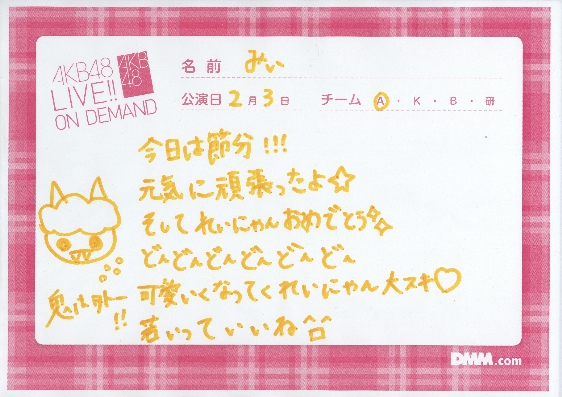 AKB48
LIVE!!
ON DEMAND
AKB
48
名前 みぃ
公演日 2月3日 チーム A・K・B・研
今日は節分!!!
元気に頑張ったよ☆
そしてれいにゃんおめでとう
どんどんどんどんどん
可愛いくなってくれいにゃん大スキ♡
若いっていいね
鬼ハ外ー
!!
DMM.com